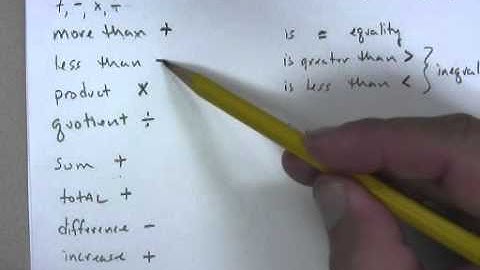 +, -, x, ÷
more than +
less than -
product x
quotient ÷
sum +
total +
difference -
increase +
is = equality
is greater than >
is less than <
inequal